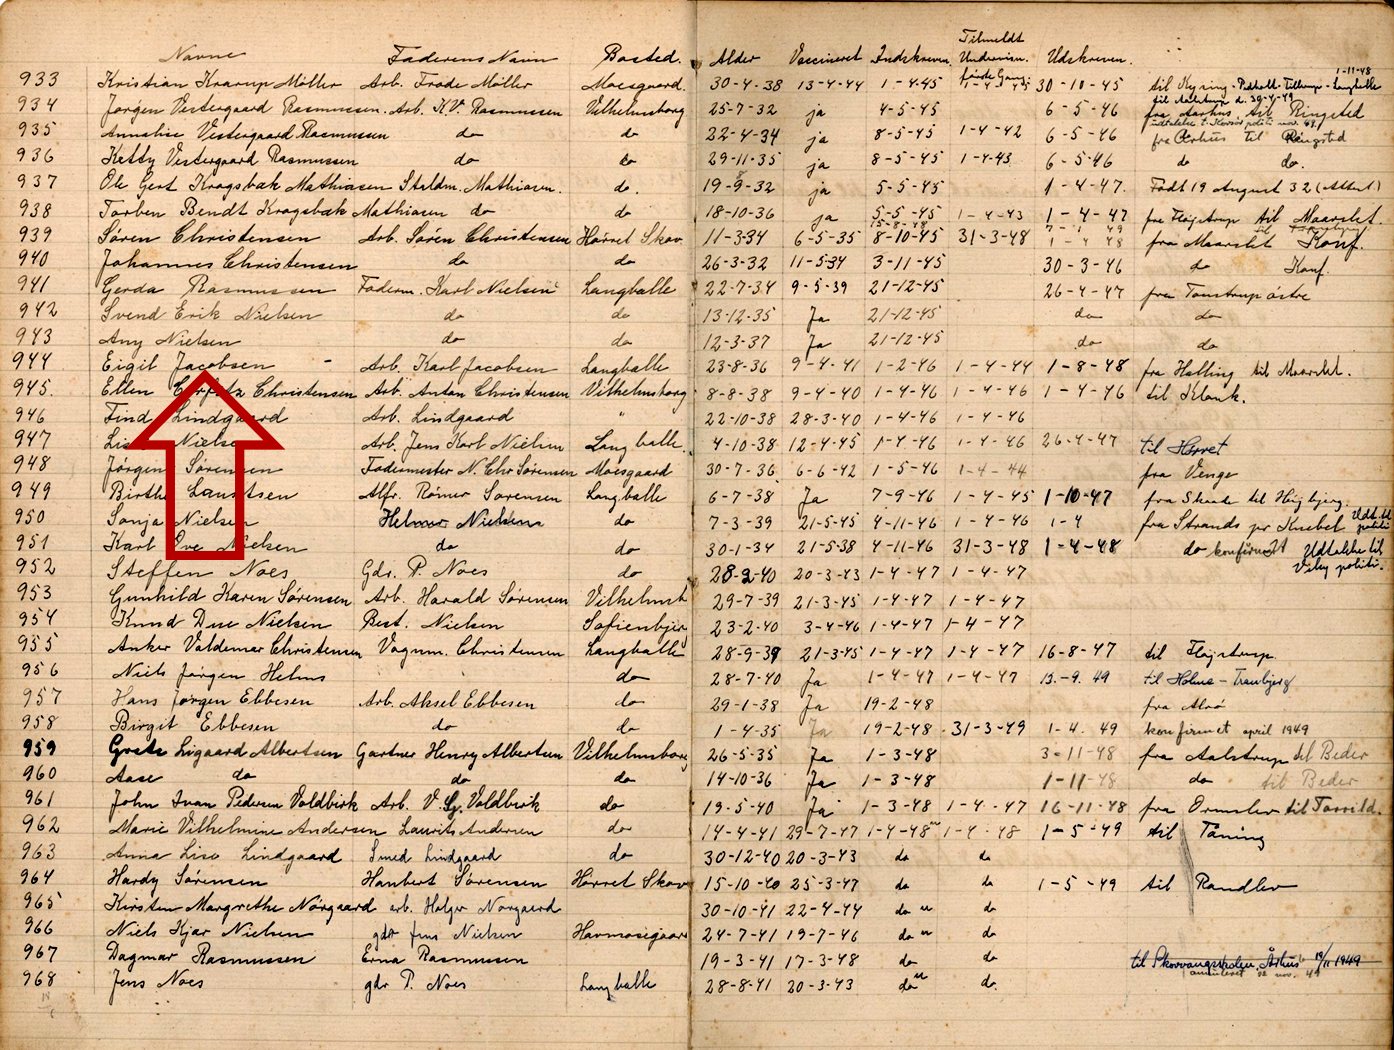 Navne Faderens Navn Bosted. Alder Vaccineret Indskreven Tilmeldt Undervisn. første Gang Udskreven.
933 Kristian Krarup Möller Arb. Frode Möller Moesgaard. 30-4-38 13-4-44 1-4-45 1-4-45 30-10-45 til Kjsing 1-11-48
934 Jørgen Vestergaard Rasmussen Arb. K.V. Rasmussen Vilhelmsborg 25-7-32 ja 4-5-45 6-5-46 fra Aarhus til Ringsted
935 Annalise Vestergaard Rasmussen do do 22-4-34 ja 8-5-45 1-4-42 6-5-46 fra Århus til Ringsted
936 Ketty Vestergaard Rasmussen do do 29-11-35 ja 8-5-45 1-4-43 6-5-46 do do.
937 Ole Gert Kragsbæk Mathiasen Staldm. Mathiasen. do. 19-9-32 ja 5-5-45 1-4-47. Født 19 August 32 (Attest)
938 Torben Bendt Kragsbæk Mathiasen do do 18-10-36 ja 5-5-45 1-4-43 1-4-47 fra Fløjstrup til Maarslet.
939 Søren Christensen Arb. Søren Christensen Hørret Skov 11-3-34 6-5-35 15-8-48 8-10-45 31-3-48 7-1-49 1-4-48 fra Maarslet Konf.
940 Johannes Christensen do do 26-3-32 11-5-34 3-11-45 30-3-46 do Konf.
941 Gerda Rasmussen Foderm. Karl Nielsen Langballe 22-7-34 9-5-39 21-12-45 26-4-47 fra Tanstrup østre
942 Svend Erik Nielsen do do 13-12-35 Ja 21-12-45 do do
943 Any Nielsen do do 12-3-37 Ja 21-12-45 do do
944 Eigil Jacobsen Arb. Karl Jacobsen Langballe 23-8-36 9-4-41 1-2-46 1-4-44 1-8-48 fra Halling til Maarslet.
945. Ellen Christensen Arb. Anton Christensen Vilhelmsborg 8-8-38 9-4-40 1-4-46 1-4-46 1-4-46 til Klank.
946 Find Lindgaard Arb. Lindgaard " 22-10-38 28-3-40 1-4-46 1-4-46
947 Nielsen Arb. Jens Karl Nielsen Langballe 4-10-38 12-4-45 1-4-46 1-4-46 26-4-47 til Hørret
948 Jørgen Sørensen Fodermester N. Chr Sørensen Moesgaard 30-7-36 6-6-42 1-5-46 1-4-44 fra Venge
949 Birthe Laustsen Alfr. Rømer Sørensen Langballe 6-7-38 Ja 7-9-46 1-4-45 1-10-47 fra Skaade til Højbjerg.
950 Sonja Nielsen Helmer Nielsen do 7-3-39 21-5-45 4-11-46 1-4-46 1-4 fra Strands pr Knebel
951 Karl Ove Nielsen do do 30-1-34 21-5-38 4-11-46 31-3-48 1-4-48 do konfirmeret Udtalelse til Viby politi.
952 Steffen Noes Gdr. P. Noes do 28-2-40 20-3-43 1-4-47 1-4-47
953 Gunhild Karen Sørensen Arb. Harald Sørensen Vilhelmsb 29-7-39 21-3-45 1-4-47 1-4-47
954 Knud Due Nielsen Best. Nielsen Sofienbjer 23-2-40 3-4-46 1-4-47 1-4-47
955 Anker Valdemar Christensen Vognm. Christensen Langballe 28-9-39 21-3-45 1-4-47 1-4-47 16-8-47 til Fløjstrup.
956 Niels Jørgen Helms do 28-7-40 Ja 1-4-47 1-4-47 13.-9. 49 til Holme - Tranbjerg
957 Hans Jørgen Ebbesen Arb. Aksel Ebbesen do 29-1-38 Ja 19-2-48 fra Alrø
958 Birgit Ebbesen do do 1-4-35 Ja 19-2-48 31-3-49 1-4. 49 konfirmet april 1949
959 Grete Ligaard Albertsen Gartner Henry Albertsen Vilhelmsborg 26-5-35 Ja 1-3-48 3-11-48 fra Aalstrup til Beder
960 Aase do do do 14-10-36 Ja 1-3-48 1-11-48 do til Beder
961 John Ivan Pedersen Voldbirk Arb. V. Voldbirk do 19-5-40 Ja 1-3-48 1-4-47 16-11-48 fra Ormslev til
962 Marie Vilhelmine Andersen Laurits Andersen do 14-4-41 29-7-47 1-4-48 1-4-48 1-5-49 til Tåning
963 Anna Lise Lindgaard Smed Lindgaard do 30-12-40 20-3-43 do do
964 Hardy Sørensen Hanbert Sørensen Hørret Skov 15-10-40 25-3-47 do do 1-5-49 til Randlev
965 Kirsten Margrethe Nørgaard arb. Holger Nørgaard 30-10-41 22-4-44 do do
966 Niels Kjær Nielsen gdr Jens Nielsen Havmosegaard 24-7-41 19-7-46 do do
967 Dagmar Rasmussen Erna Rasmussen 19-3-41 17-3-48 do do til Skovvangsskolen, Århus 19/11 1949
968 Jens Noes gdr P. Noes Langballe 28-8-41 20-3-43 do do.